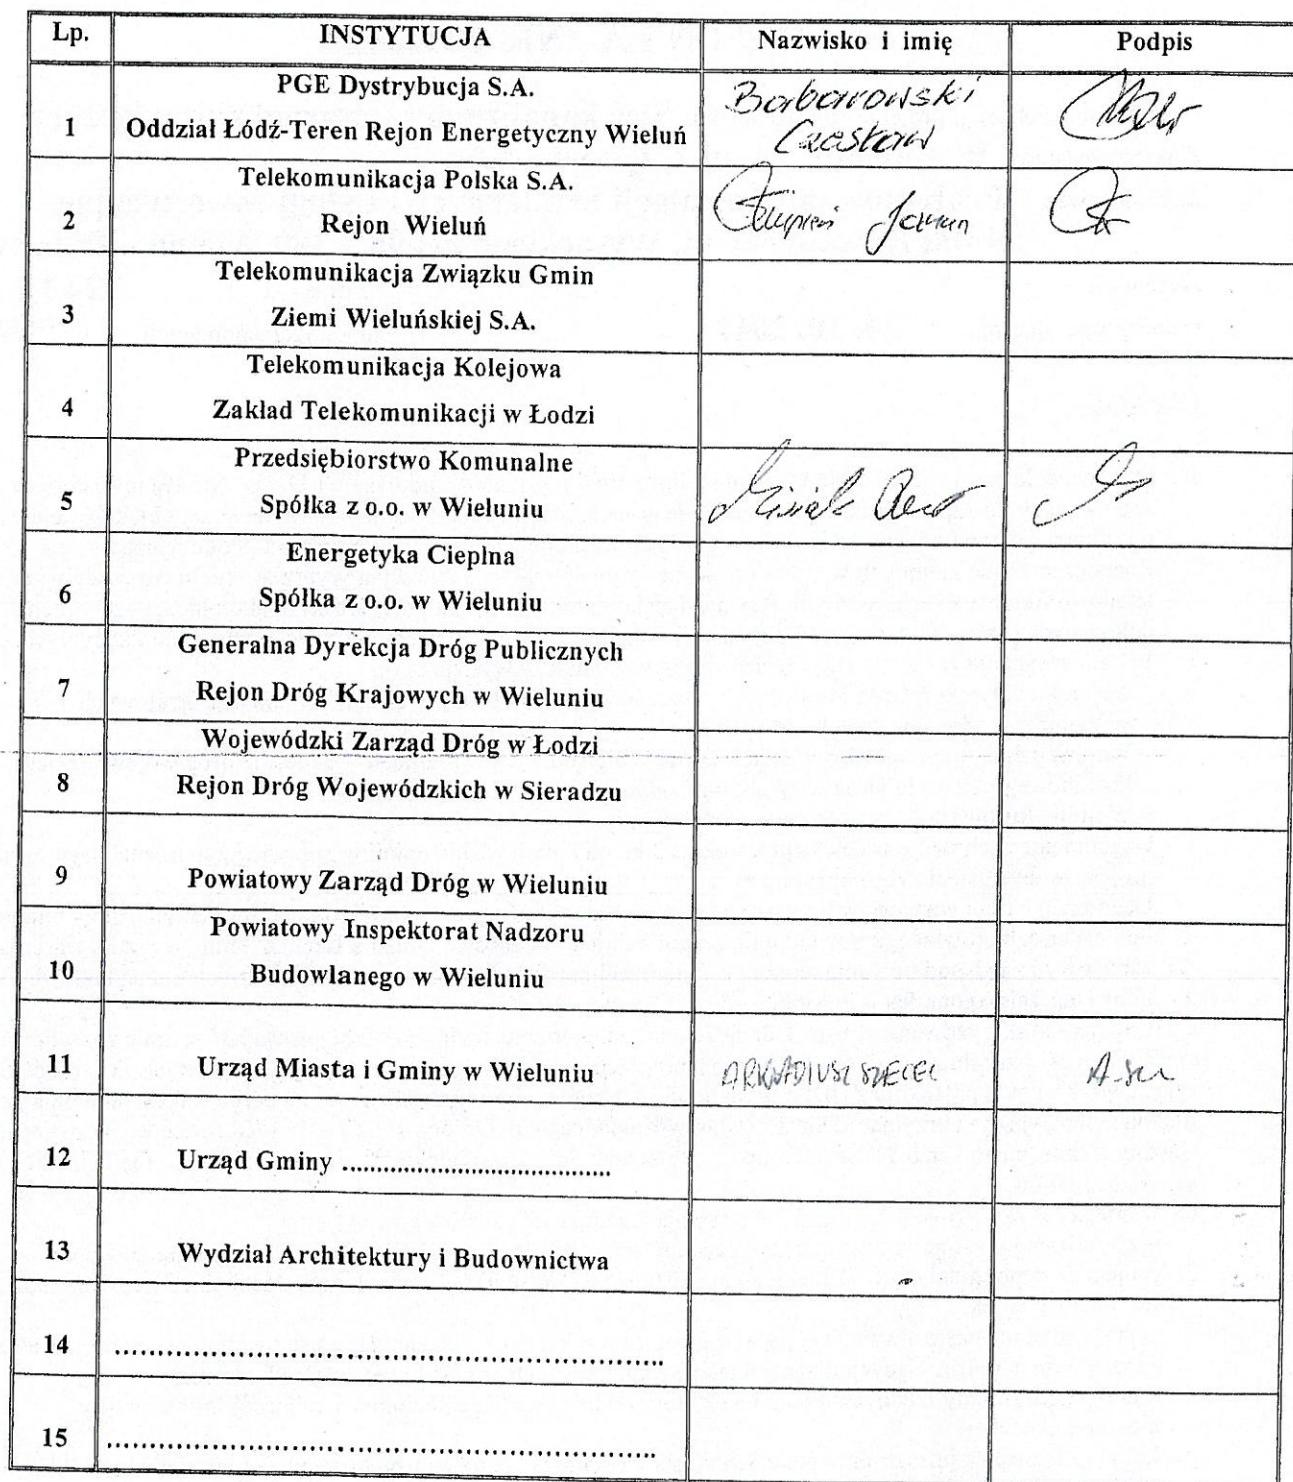 Lp. INSTYTUCJA Nazwisko i imię Podpis
PGE Dystrybucja S.A.
1 Oddział Łódź-Teren Rejon Energetyczny Wieluń
Barbarowski
Czesław
Telekomunikacja Polska S.A.
2 Rejon Wieluń
Telekomunikacja Związku Gmin
3 Ziemi Wieluńskiej S.A.
Telekomunikacja Kolejowa
4 Zakład Telekomunikacji w Łodzi
Przedsiębiorstwo Komunalne
5 Spółka z o.o. w Wieluniu
Energetyka Cieplna
6 Spółka z o.o. w Wieluniu
Generalna Dyrekcja Dróg Publicznych
7 Rejon Dróg Krajowych w Wieluniu
Wojewódzki Zarząd Dróg w Łodzi
8 Rejon Dróg Wojewódzkich w Sieradzu
9 Powiatowy Zarząd Dróg w Wieluniu
Powiatowy Inspektorat Nadzoru
10 Budowlanego w Wieluniu
11 Urząd Miasta i Gminy w Wieluniu ARKADIUSZ
12 Urząd Gminy ....................................
13 Wydział Architektury i Budownictwa
14 ........................................................................
15 ........................................................................